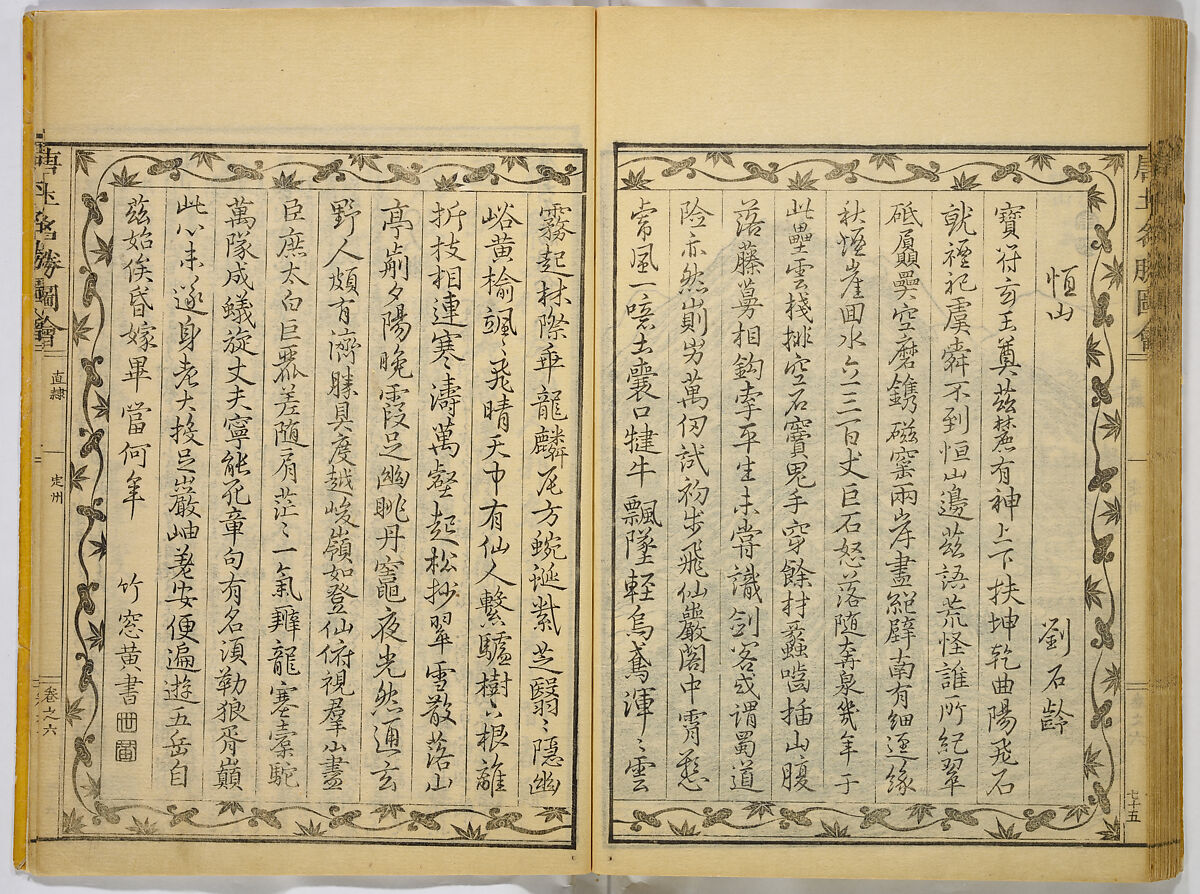 唐土名勝圖會
七十五
恒山
劉石齡
寶符玄玉奠茲麓有神上下扶坤乾曲陽飛石
就禋祀虞舜不到恒山邊茲語荒怪誰所紀翠
秋崖面水六三百丈巨石怒落隨奔泉幾年于
此壘雲棧排空石竇鬼手穿餘材蠹嚙插山腹
落藤蔓相鈎牽平生未嘗識劍客或謂蜀道
險亦然崱屴萬仞試初步飛仙巖閣中霄懸
常風一噫土囊口犍牛飄墜輕烏鳶渾〻雲
霧起林際垂龍麟尾方蜿蜒紫芝翳〻隱幽
峪黄榆颯〻飛晴天中有仙人繫驢樹六根離
折枝相連寒濤萬壑起松抄翠雪散落山
亭前夕陽晚霞足幽眺丹竈夜光然通玄
野人頗有濟勝具度越峻嶺如登仙俯視羣山盡
臣庶太白巨羆差随肩茫〻一氣龍塞橐駝
萬隊成蟻旋丈夫寧能死章句有名須勒狼胥巔
此心未遂身老大投足巖岫差安便遍遊五岳自
茲始俟昏嫁畢當何年
竹窓黄書
唐土名勝圖會
直隷
定州
卷之六